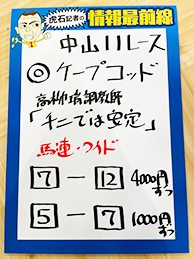 虎石記者の
情報最前線
中山11レース
◎ケープコッド
高柳瑞調教師
「チ二では安定」
馬連・ワイド
7-12 4000円ずつ
5-7 1000円ずつ